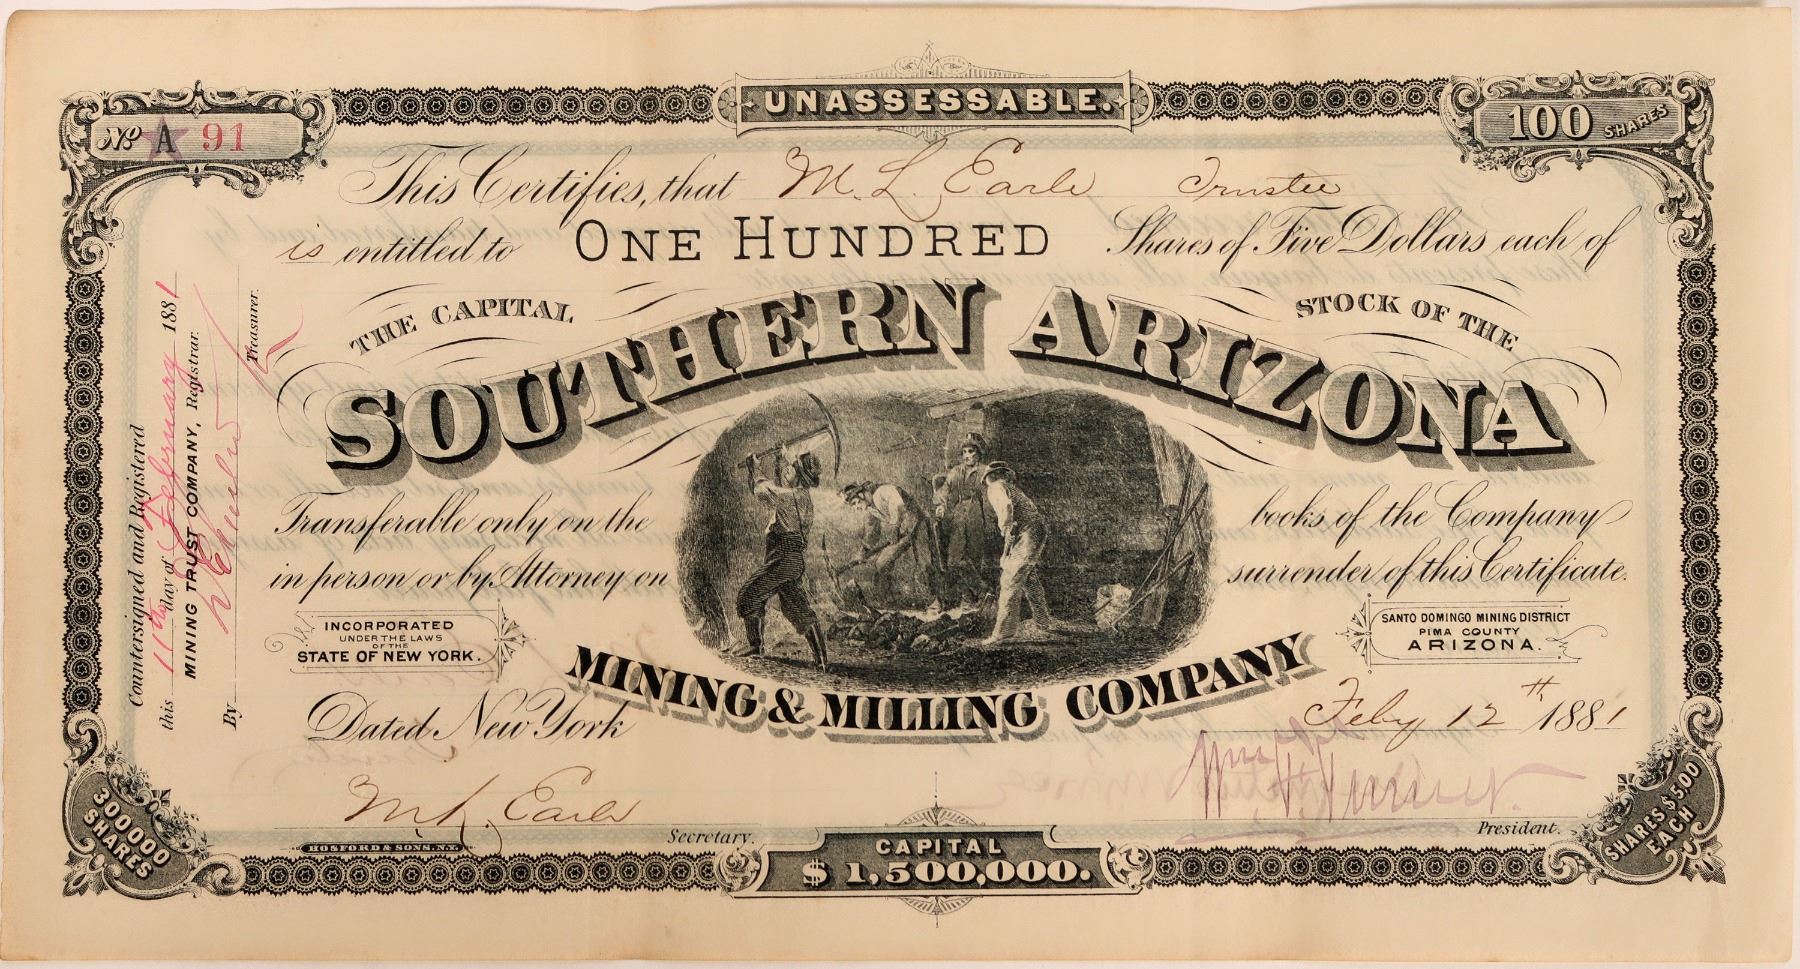 UNASSESSABLE.
No A 91
100 SHARES
This Certifies, that M. L. Earle Trustee
is entitled to ONE HUNDRED Shares of Five Dollars each of
THE CAPITAL STOCK OF THE
SOUTHERN ARIZONA
MINING & MILLING COMPANY
Transferable only on the books of the Company
in person or by Attorney on surrender of this Certificate.
INCORPORATED
UNDER THE LAWS
OF THE
STATE OF NEW YORK.
SANTO DOMINGO MINING DISTRICT
PIMA COUNTY
ARIZONA.
Dated New York Feby 12th 1881
M. L. Earle Secretary.
President.
HOSFORD & SONS. N.Y.
300000 SHARES
CAPITAL
$1,500,000.
SHARES $5.00 EACH
Countersigned and Registered
this 11th day of February 1881
MINING TRUST COMPANY, Registrar.
By Treasurer.